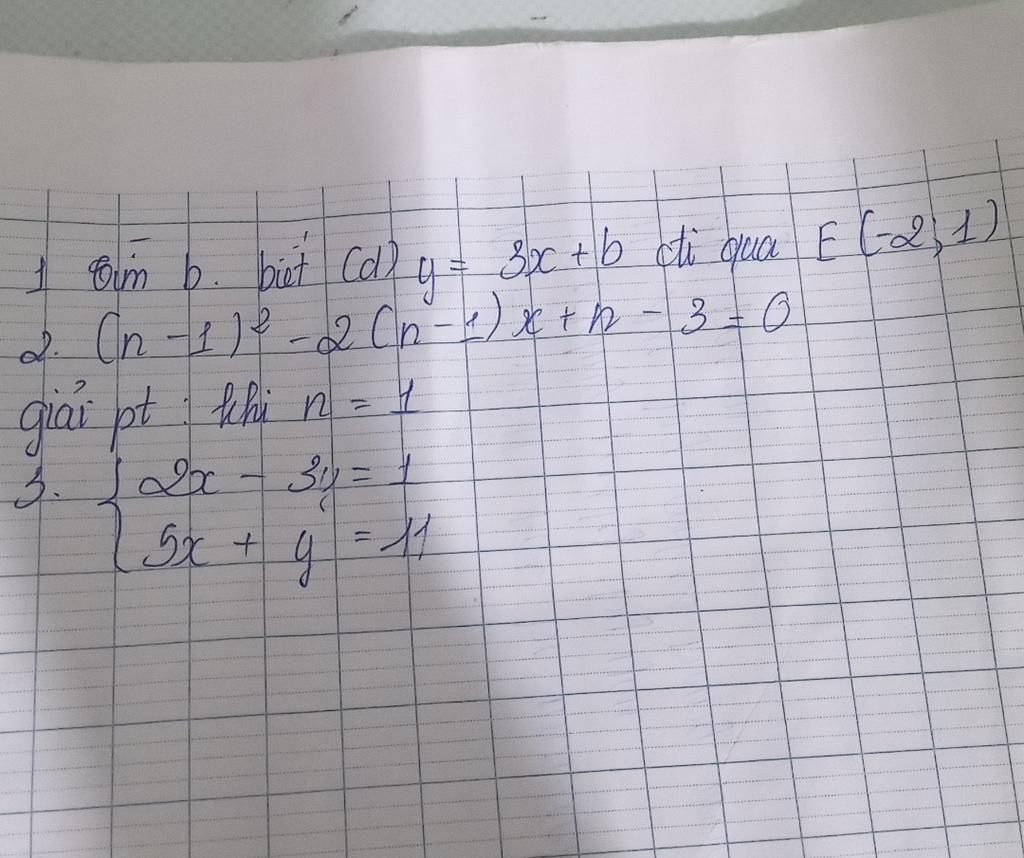 1 Tìm b. biết (d) y = 3x + b đi qua E (-2; 1)
2. (n - 1)² - 2 (n - 1) x + n - 3 = 0
giải pt : khi n = 1
3. { 2x - 3y = 1
5x + y = 11